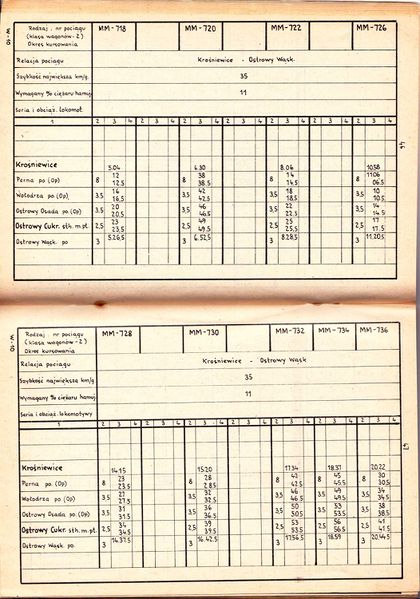 W-10
Rodzaj i nr pociągu
(klasa wagonów-2)
Okres kursowania
MM-718 MM-720 MM-722 MM-726
Relacja pociągu Krośniewice - Ostrowy Wąsk.
Szybkość największa km/g. 35
Wymagany % ciężaru hamuj. 11
Seria i obciąż. lokomot.
1 2 3 4 2 3 4 2 3 4 2 3 4
46
Krośniewice 5.04 6.30 8.06 10.58
Perna po (Op) 8 12 8 38 8 14 8 11.06
12.5 38.5 14.5 06.5
Wołodrza po (Op) 3,5 16 3,5 42 3,5 18 3,5 10
16.5 42.5 18.5 10.5
Ostrowy Osada po.(Op) 3,5 20 3,5 46 3,5 22 3,5 14
20.5 46.5 22.5 14.5
Ostrowy Cukr. sth. m.pt. 2,5 23 2,5 49 2,5 25 2,5 17
23.5 49.5 25.5 17.5
Ostrowy Wąsk. po 3 5.26,5 3 6.52,5 3 8.28,5 3 11.20,5
W-10
Rodzaj nr pociągu
(klasa wagonów-2)
Okres kursowania
MM-728 MM-730 MM-732 MM-734 MM-736
Relacja pociągu Krośniewice - Ostrowy Wąsk
Szybkość największe km/g 35
Wymagany % ciężaru hamuj 11
Seria i obciąż. lokomotywy
1 2 3 4 2 3 4
47
Krośniewice 14.15 15.20 17.34 18.37 20.22
Perna po.(Op) 8 23 8 28 8 42 8 45 8 30
23.5 28.5 42.5 45.5 30.5
Wołodrza po (Op) 3,5 27 3,5 32 3,5 46 3,5 49 3,5 34
27.5 32.5 46.5 49.5 34.5
Ostrowy Osada po.(Op) 3,5 31 3,5 36 3,5 50 3,5 53 3,5 38
31.5 36.5 50.5 53.5 38.5
Ostrowy Cukr. sth. m.pt. 2,5 34 2,5 39 2,5 53 2,5 56 2,5 41
34.5 39.5 53.5 56.5 41.5
Ostrowy Wąsk. po. 3 14.37.5 3 3 17.56,5 3 18.59 3 20.44,5